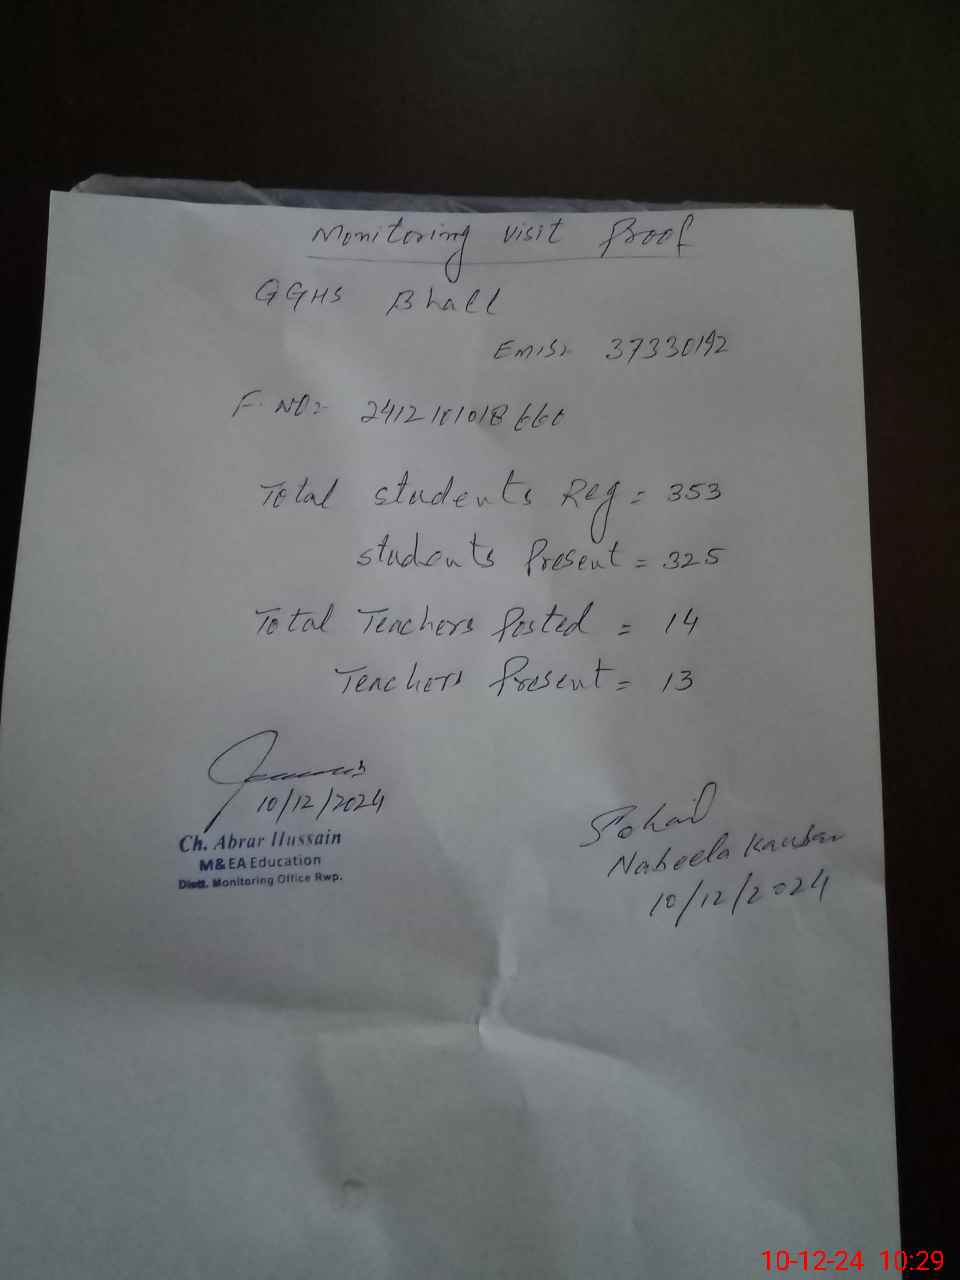 Monitoring visit Proof
GGHS Bhall
Emis:- 37330192
F. NO:- 2412101018660
Total students Reg = 353
students Present = 325
Total Teachers Posted = 14
Teachers Present = 13
10/12/2024
Ch. Abrar Hussain
M&EA Education
Distt. Monitoring Office Rwp.
Sohail
Nabeela Kausar
10/12/2024
10-12-24 10:29